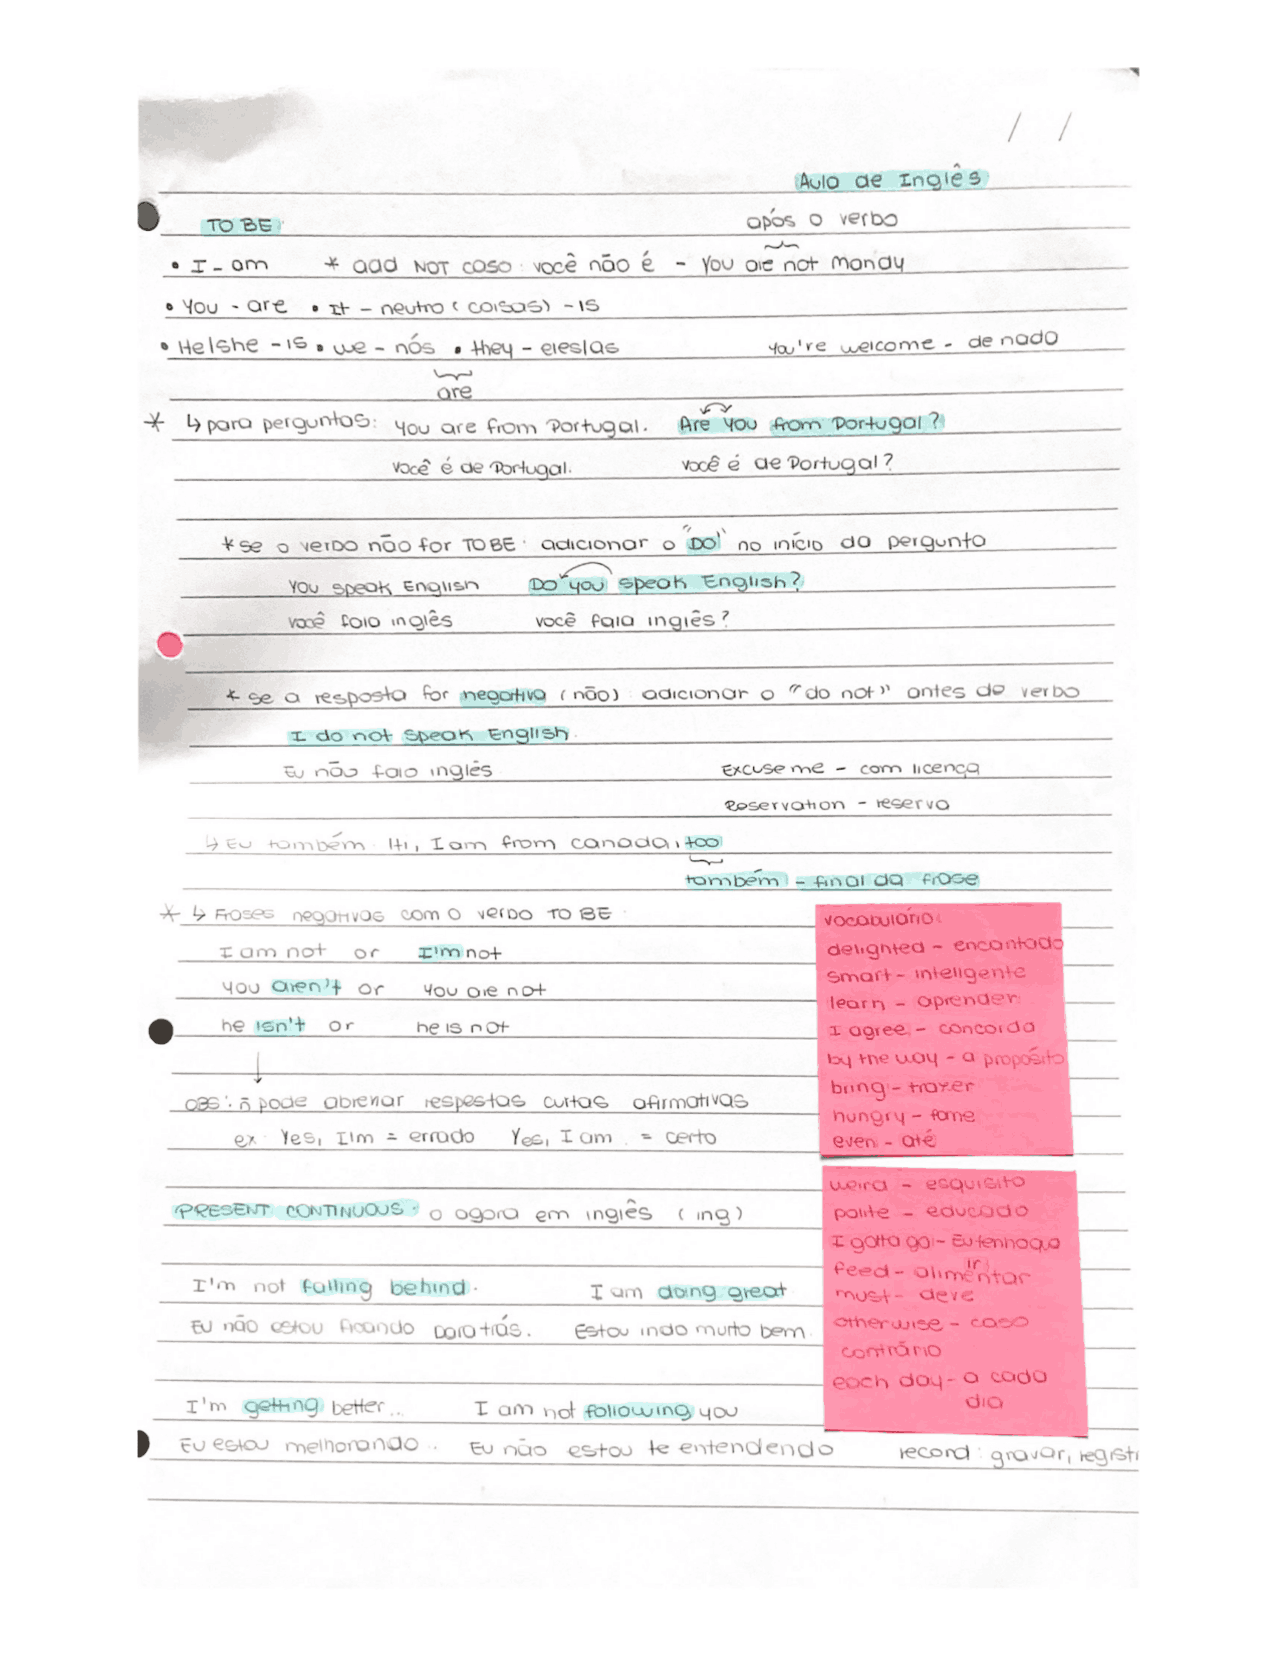 / /
Aula de Inglês
TO BE:
após o verbo
• I - am * add NOT caso: você não é - You are not Mandy
• You - are • It - neutro (coisas) - is
• He/she - is • we - nós • they - eles/as
You're welcome - de nada
are
* ↳ para perguntas: You are from Portugal. Are you from Portugal?
você é de Portugal. você é de Portugal?
* se o verbo não for TO BE: adicionar o "DO" no início da pergunta
You speak English Do you speak English?
você fala inglês você fala inglês?
* se a resposta for negativa (não): adicionar o "do not" antes do verbo
I do not speak English.
Eu não falo inglês
Excuse me - com licença
Reservation - reserva
↳ Eu também: Hi, I am from Canada, too
também - final da frase
* ↳ Frases negativas com o verbo TO BE:
I am not or I'm not
You aren't or You are not
he isn't or he is not
OBS: ñ pode abreviar respostas curtas afirmativas
ex: Yes, I'm = errado Yes, I am. = certo
PRESENT CONTINUOUS: o agora em inglês (ing)
I'm not falling behind. I am doing great
Eu não estou ficando para trás. Estou indo muito bem.
I'm getting better... I am not following you
Eu estou melhorando.. Eu não estou te entendendo
vocabulário:
delighted - encantado
smart - inteligente
learn - aprender
I agree - concorda
by the way - a propósito
bring - trazer
hungry - fome
even - até
weird - esquisito
polite - educado
I gotta go - Eu tenho que ir
feed - alimentar
must - deve
otherwise - caso
contrário
each day - a cada
dia
record: gravar, registr